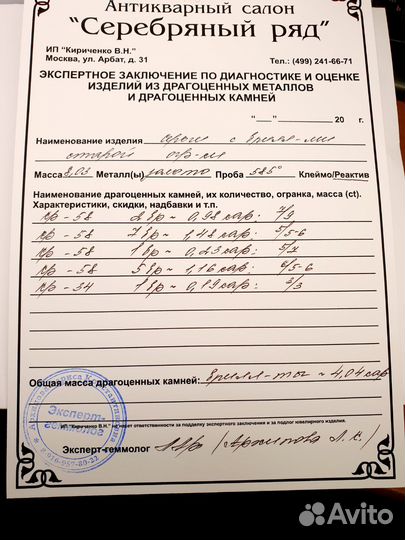 Антикварный салон
"Серебряный ряд"
ИП "Кириченко В.Н."
Москва, ул. Арбат, д. 31
Тел.: (499) 241-66-71
ЭКСПЕРТНОЕ ЗАКЛЮЧЕНИЕ ПО ДИАГНОСТИКЕ И ОЦЕНКЕ
ИЗДЕЛИЙ ИЗ ДРАГОЦЕННЫХ МЕТАЛЛОВ
И ДРАГОЦЕННЫХ КАМНЕЙ
"__" 20 г.
Наименование изделия с брилл-ми
старой огр-ки
Масса 8,03 Металл(ы) золото Проба 585° Клеймо/Реактив
Наименование драгоценных камней, их количество, огранка, масса (ct).
Характеристики, скидки, надбавки и т.п.
кр - 58 2 бр ~ 0,98 кар: 7/9
кр - 58 7 бр ~ 1,48 кар: 5/5-6
кр - 58 1 бр ~ 0,23 кар: 5/7
кр - 58 5 бр ~ 1,16 кар: 6/5-6
кр - 34 1 бр ~ 0,19 кар: 3/3
Общая масса драгоценных камней: Брилл-ты ~ 4,04 кар
ИП "Кириченко В.Н." не несет ответственности за подделку экспертного заключения и за подлог ювелирного изделия.
Эксперт-геммолог (Архипова Л.К.)
Эксперт-
геммолог
8-916-957-80-22
Avito